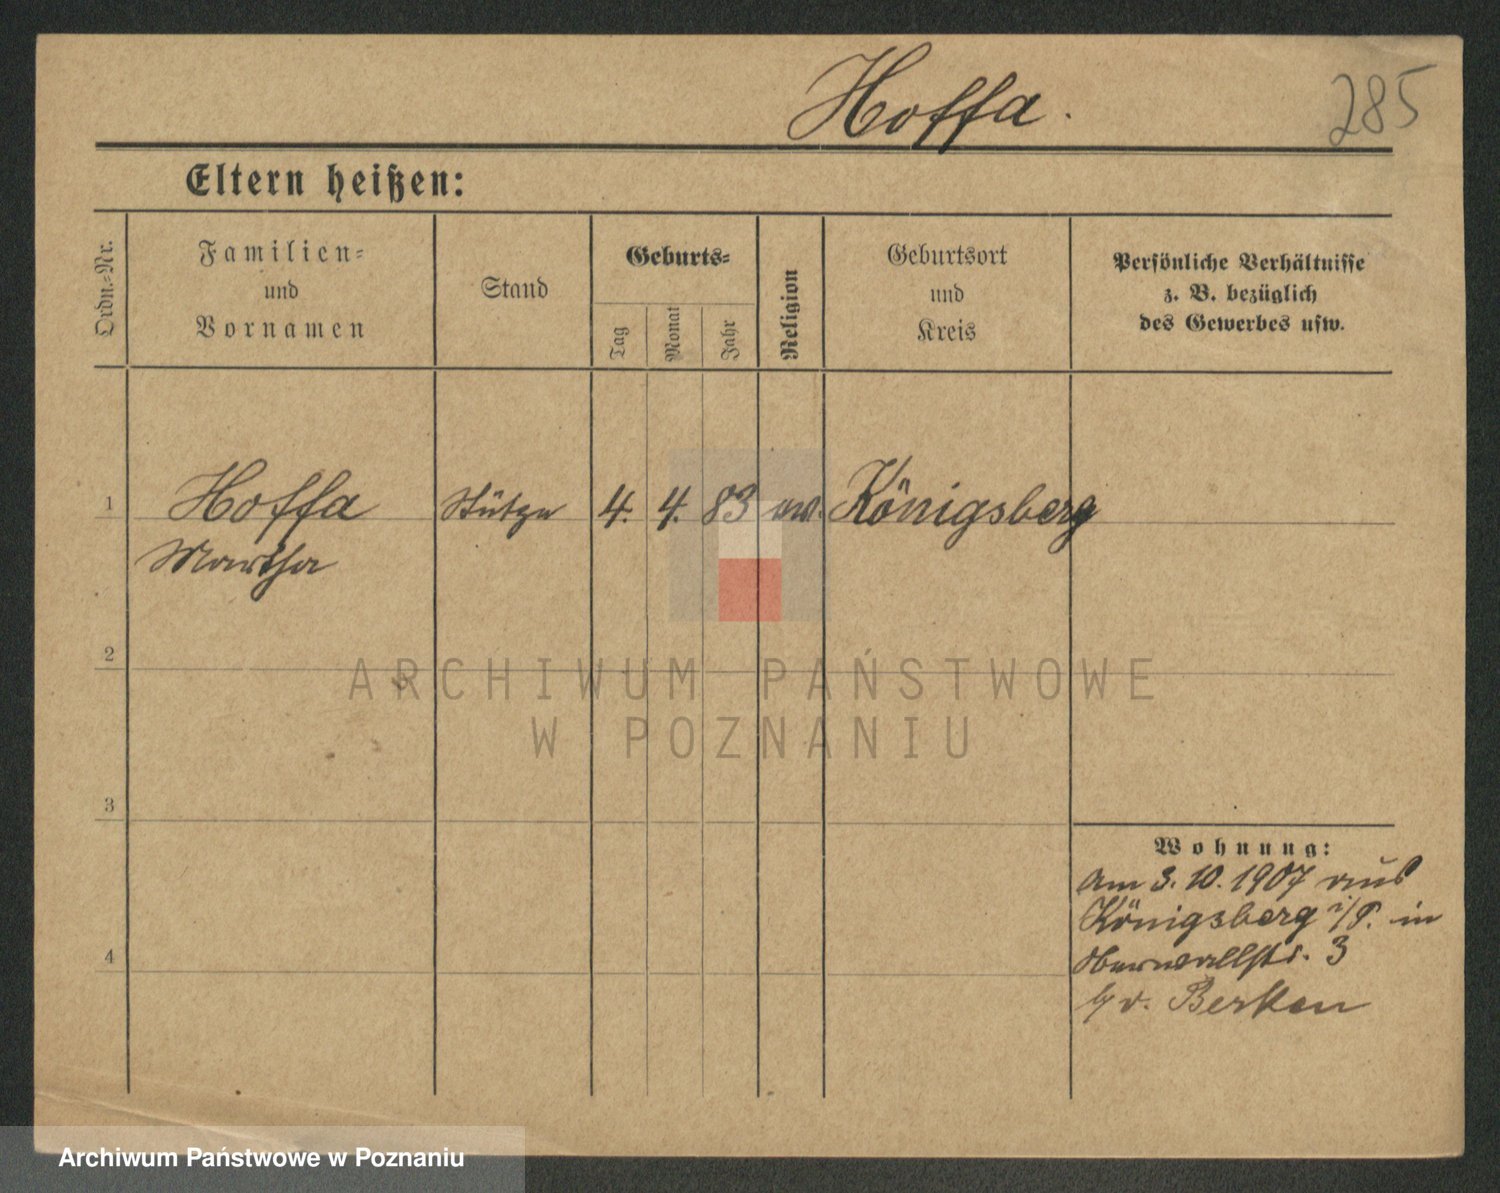 Hoffa.
285
Eltern heißen:
Ordn.-Nr.
Familien-
und
Vornamen
Stand
Geburts-
Tag
Monat
Jahr
Religion
Geburtsort
und
Kreis
Persönliche Verhältnisse
z. B. bezüglich
des Gewerbes usw.
1 Hoffa Stütze 4. 4. 83 ev. Königsberg
Martha
2
3
4
Wohnung:
Am 3. 10. 1907 aus
Königsberg i/P. in
Oberwallstr. 3
b/ v. Berken
ARCHIWUM PAŃSTWOWE
W POZNANIU
Archiwum Państwowe w Poznaniu